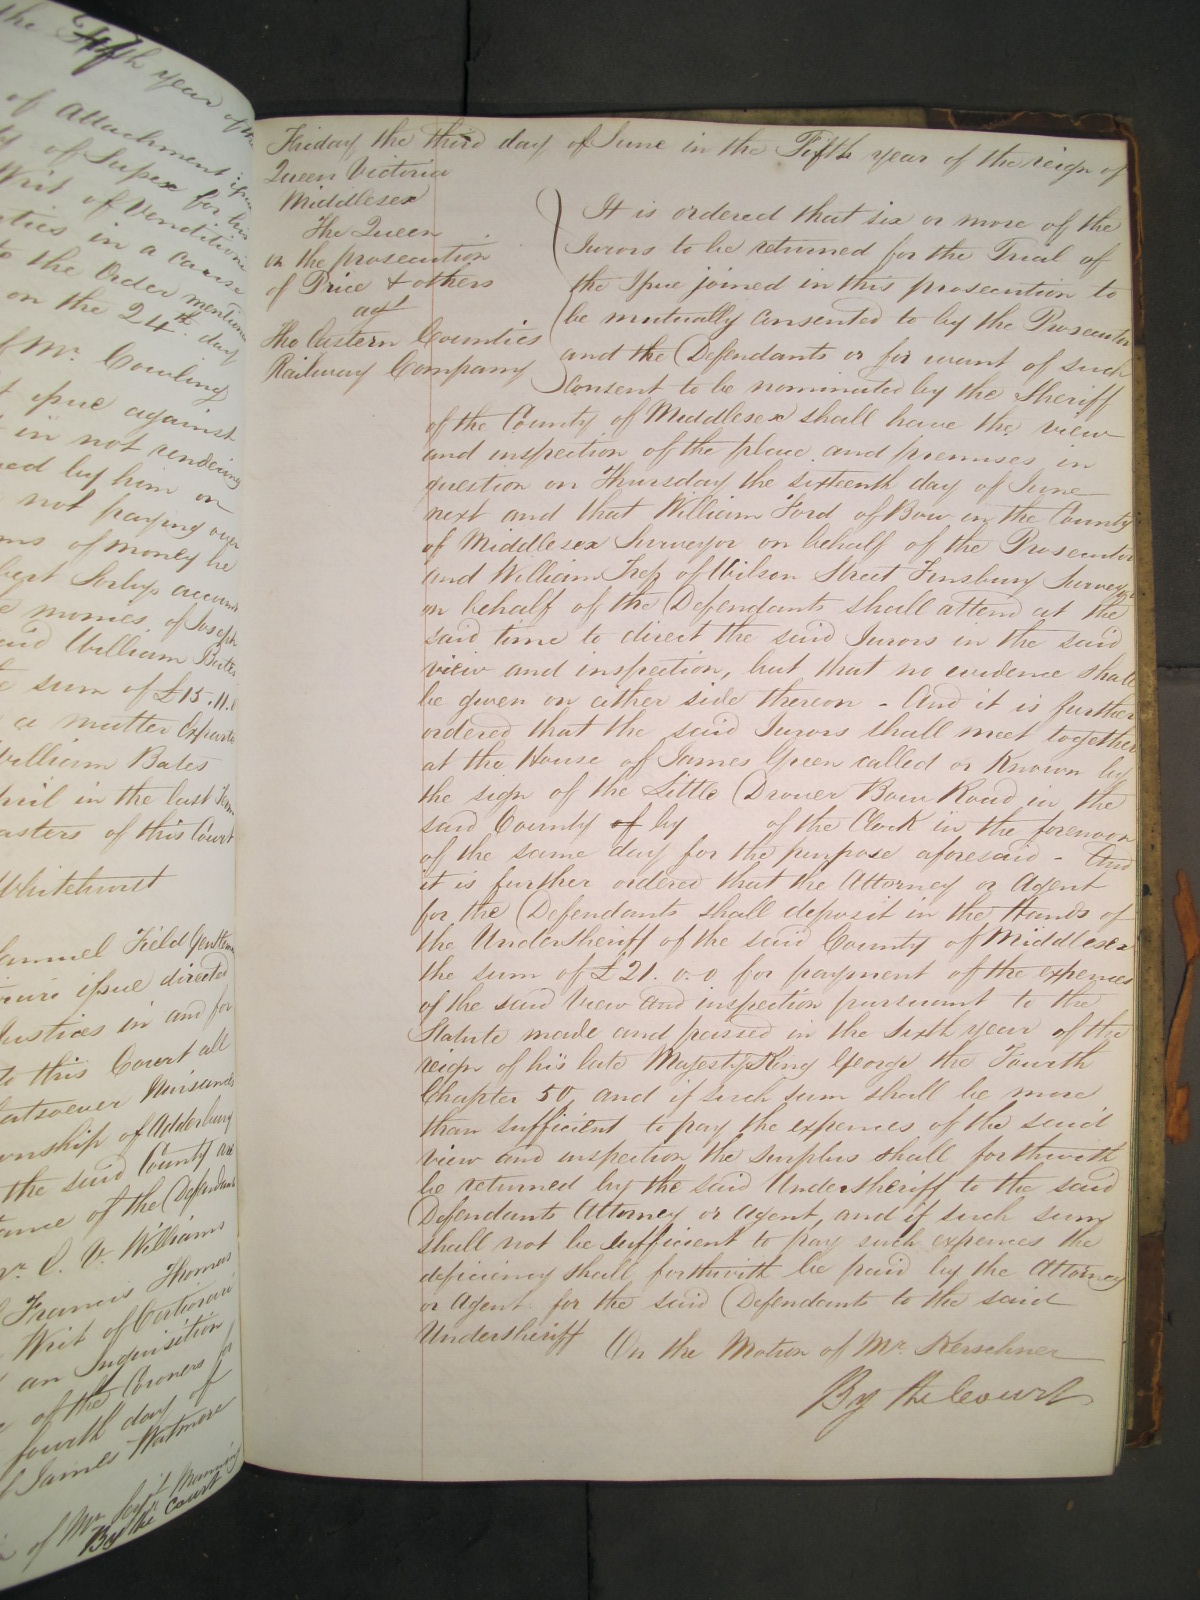 the Fifth year of the
of Attachment issue
of Supex for his
Writ of Venditioni
in a cause
the Order mentioned
on the 24th day
of Mr. Cowling
issue against
in not rendering
by him on
not paying over
of money he
Sorbys account
monies of Joseph
said William Bates
sum of £15.11.
a matter Exparte
William Bates
in the last Term
Masters of this Court
Whitehurst
Samuel Field Gentleman
issue directed
Justices in and for
to this Court all
whatsoever Nuisances
Township of Adderbury
the said County are
instance of the Defendants
Mr. C. V. Williams
Francis Thomas
Writ of Certiorari
an Inquisition
of the Coroners for
fourth day of
James Watmore
of Mr.
By the Court
Friday the third day of June in the Fifth year of the reign of
Queen Victoria
Middlesex
The Queen
on the prosecution
of Price & others
agt
The Eastern Counties
Railway Company
It is ordered that six or more of the
Jurors to be returned for the Trial of
the Issue joined in this prosecution to
be mutually consented to by the Prosecutor
and the Defendants or for want of such
Consent to be nominated by the Sheriff
of the County of Middlesex shall have the view
and inspection of the place and premises in
question on Thursday the sixteenth day of June
next and that William Ford of Bow in the County
of Middlesex Surveyor on behalf of the Prosecutor
and William of Wilson Street Finsbury Surveyor
on behalf of the Defendants shall attend at the
said time to direct the said Jurors in the said
view and inspection, but that no evidence shall
be given on either side thereon - And it is further
ordered that the said Jurors shall meet together
at the House of James Green called or Known by
the sign of the Little Drover Bow Road in the
said County of by of the Clock in the forenoon
of the same day for the purpose aforesaid - And
it is further ordered that the Attorney or Agent
for the Defendants shall deposit in the Hands of
the Undersheriff of the said County of Middlesex
the sum of £21. 0. 0 for payment of the expences
of the said View and inspection pursuant to the
Statute made and passed in the Sixth year of the
reign of his late Majesty King George the Fourth
Chapter 50, and if such sum shall be more
than sufficient to pay the expences of the said
view and inspection the surplus shall forthwith
be returned by the said Undersheriff to the said
Defendants Attorney or Agent, and if such sum
shall not be sufficient to pay such expences the
deficiency shall forthwith be paid by the Attorney
or Agent for the said Defendants to the said
Undersheriff On the Motion of Mr. Kerschner
By the Court